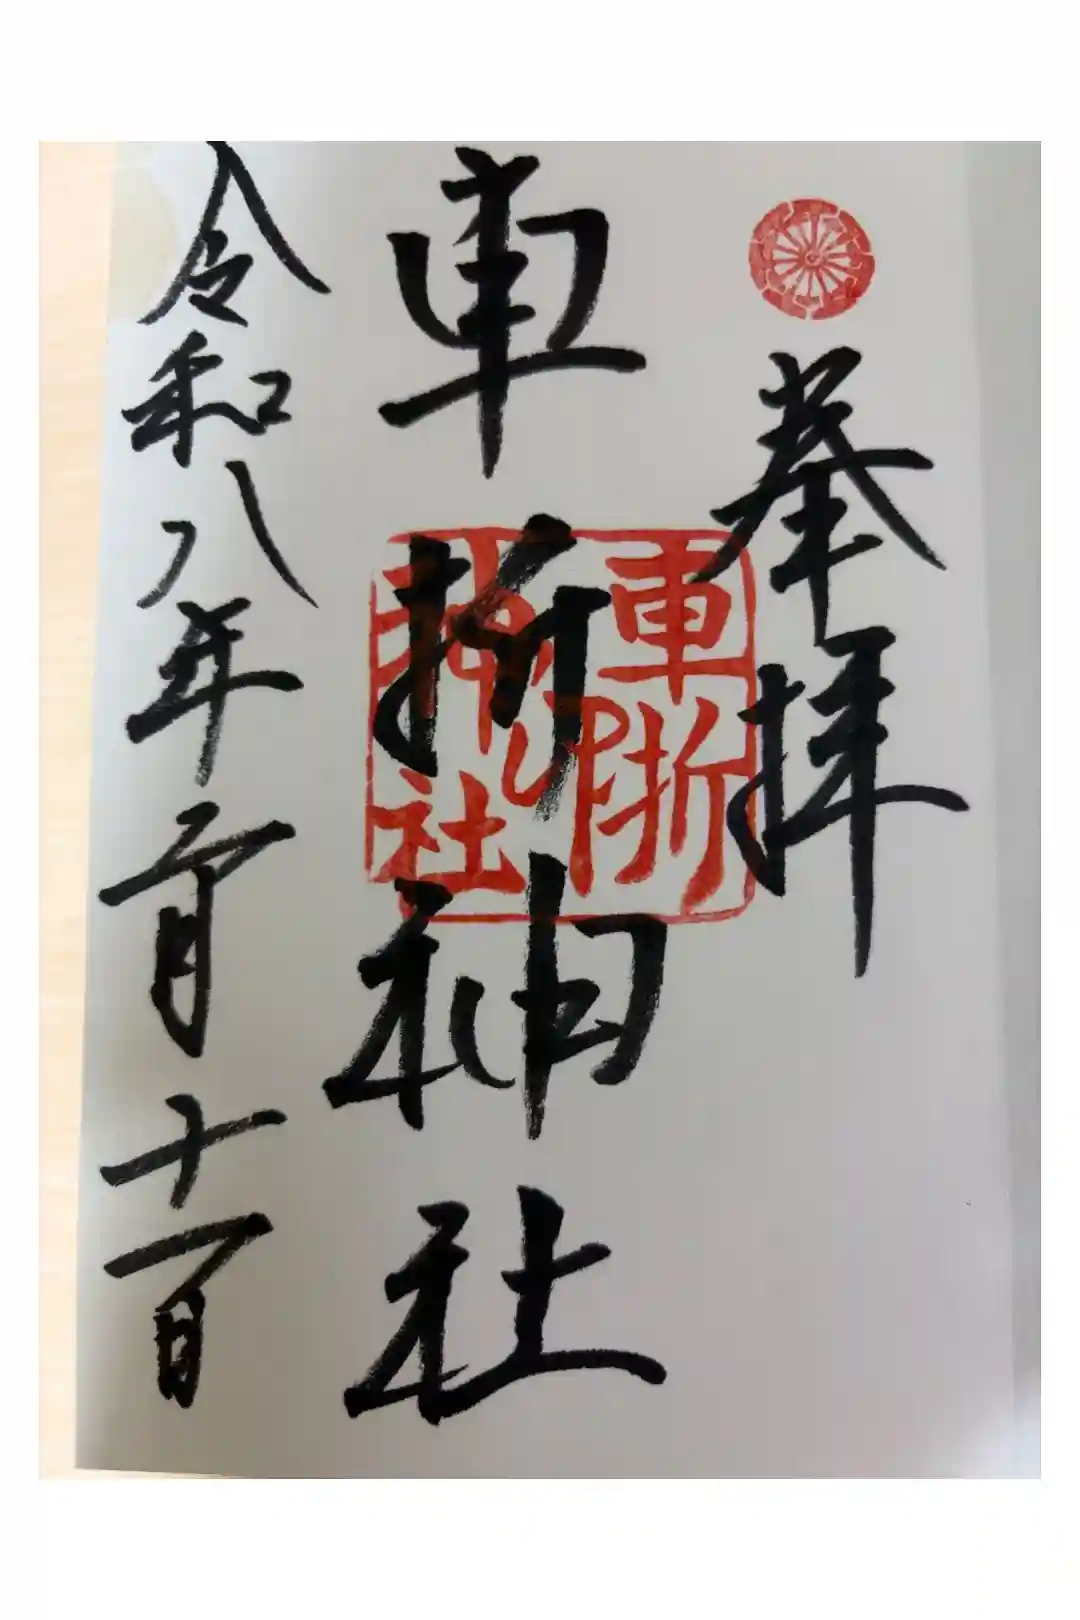 奉拝
車折神社
車折神社印
令和八年二月十一日